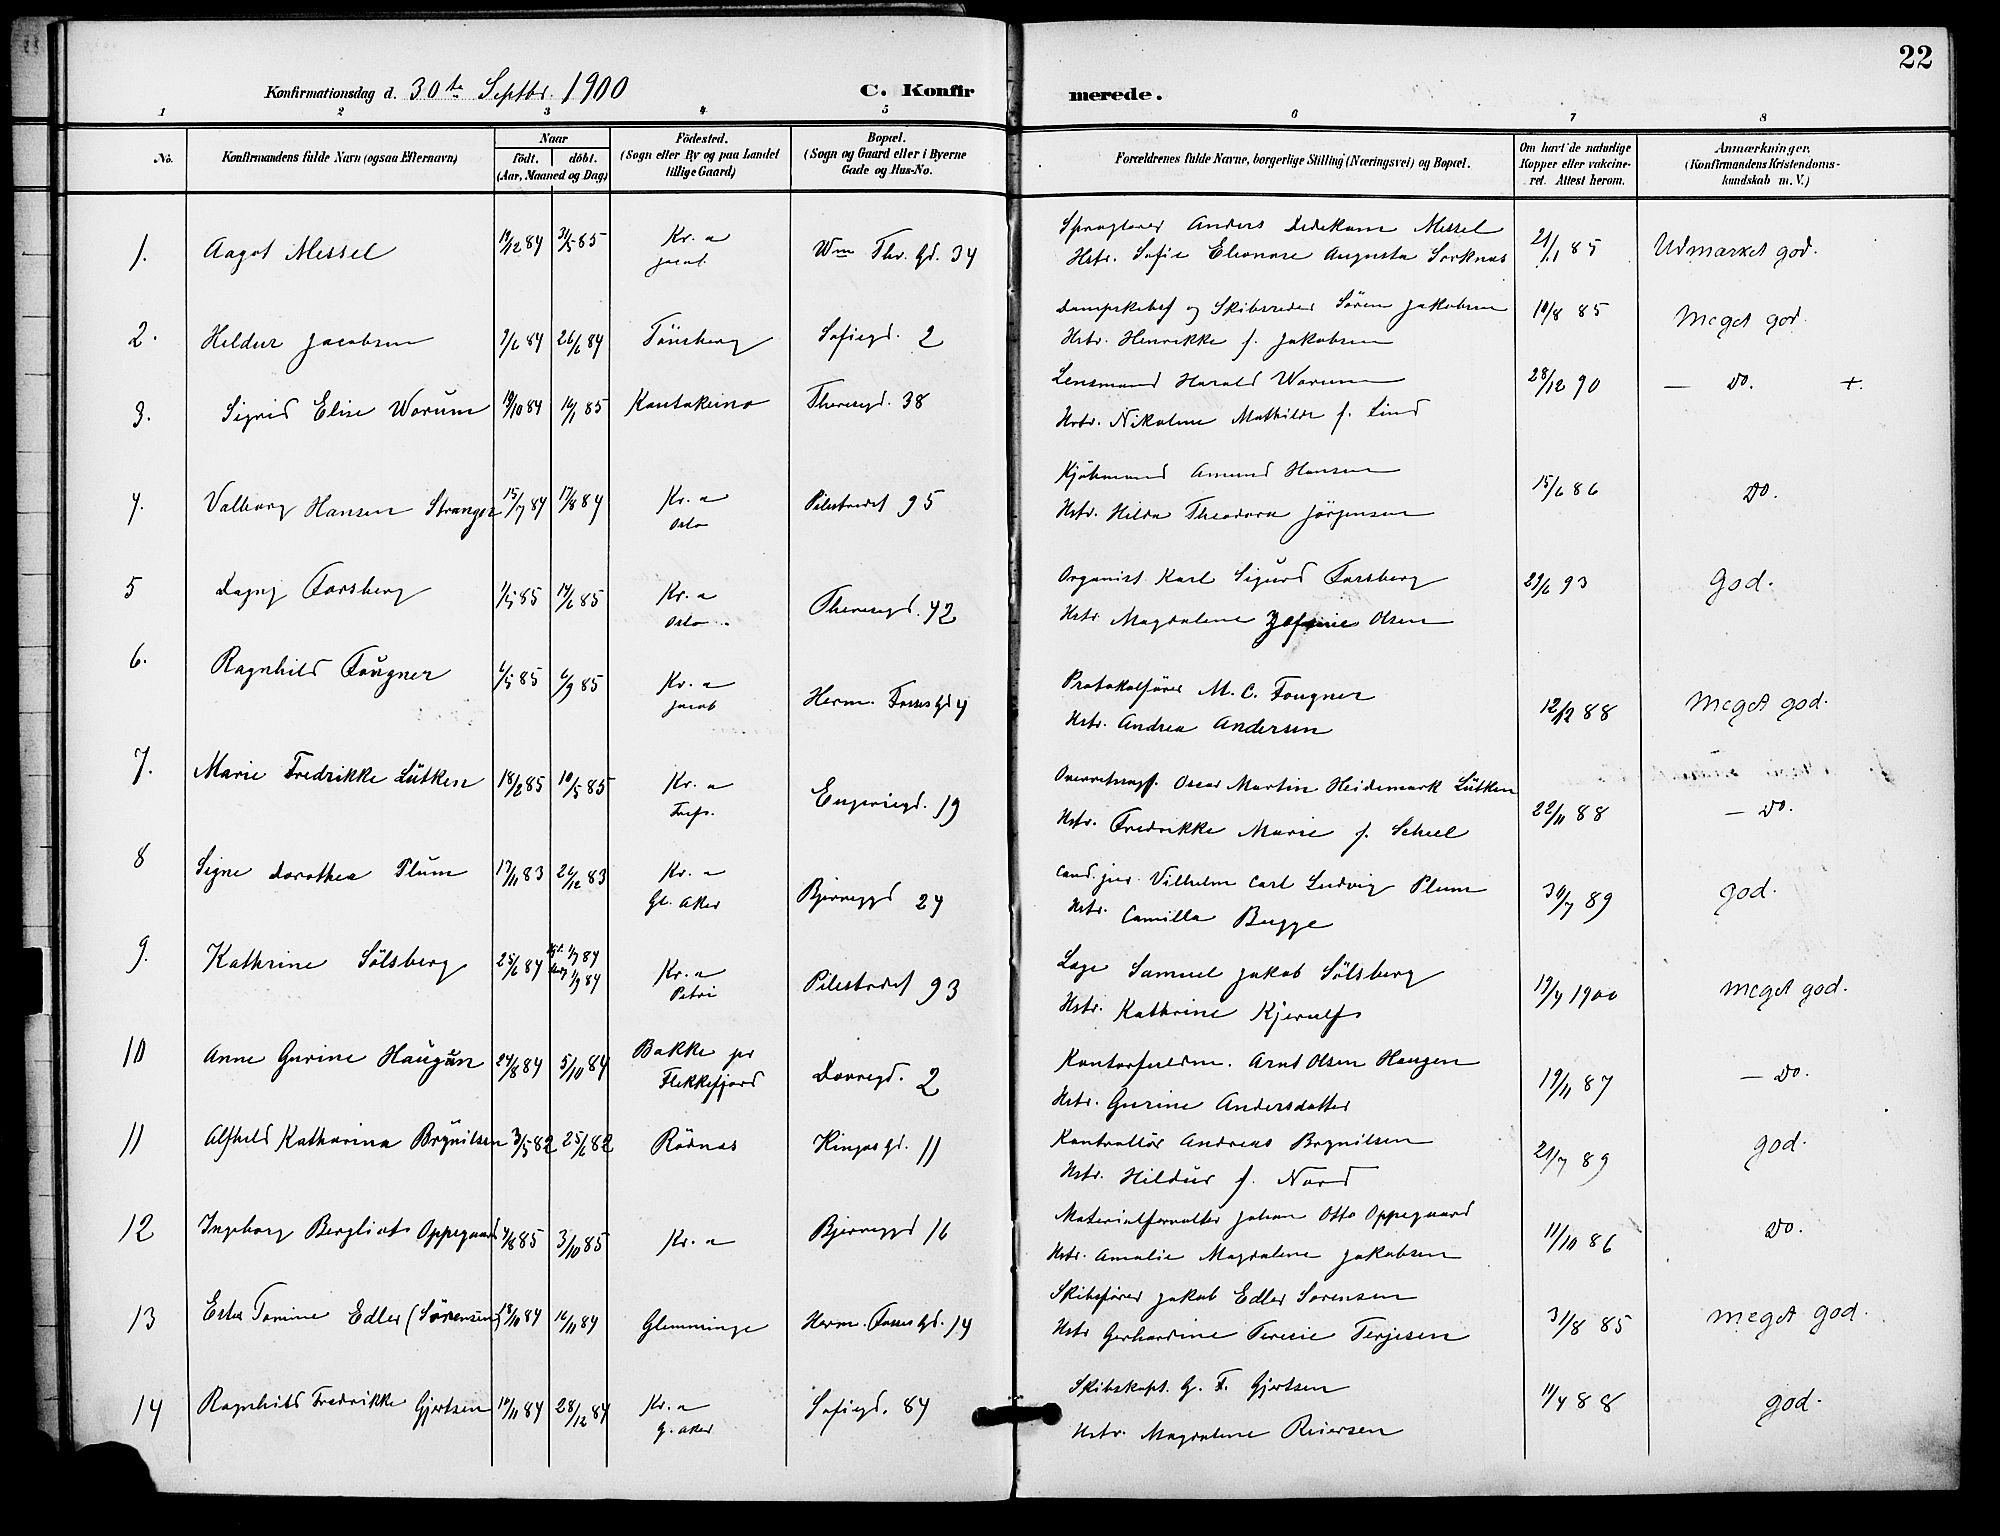 22
Konfirmationsdag d. 30te Septbr. 1900
C. Konfirmerede.
1 2 3 4 5 6 7 8
No.
Konfirmandens fulde Navn (ogsaa Efternavn)
Naar
födt. döbt.
(Aar, Maaned og Dag)
Födested.
(Sogn eller By og paa Landet
tillige Gaard)
Bopæl.
(Sogn og Gaard eller i Byerne
Gade og Hus-No.
Forældrenes fulde Navne, borgerlige Stilling (Næringsvei) og Bopæl.
Om havt de naturlige
Kopper eller vakcine-
ret. Attest herom.
Anmærkninger.
(Konfirmandens Kristendoms-
kundskab m. V.)
1. Aagot Messel 19/12 84 31/5 85 Kr.a Wm Thr. Gd. 34 Anders Dedekam Messel 21/1 85 Udmærket god.
Jacob Hstr. Sofie Eleonore Augusta
2. Hildur Jacobsen 7/6 84 26/6 84 Tönsberg Sofiegd. 2 og Skibsreder Sören Jakobsen 19/8 85 Meget god.
Hstr. Henrikke f. Jakobsen
3. Sigrid Elise Worum 19/10 84 16/1 85 Kautokeino Theresegd. 38 Lensmand Harald Worum 28/12 90 — Do. +
Hstr. Nikoline Mathilde f. Lind
4. Valborg Hansen Stranger 15/7 84 17/8 84 Kr.a Pilestrædet 95 Kjöbmand Amund Hansen 15/6 86 Do.
Oslo Hstr. Hilda Theodora Jörgensen
5 Dagny Forsberg 1/5 85 14/6 85 Kr.a Theresegd. 42 Organist Karl Sigurd Forsberg 29/6 93 God.
Oslo Hstr Magdalene Olsen
6. Ragnhild Fougner 6/5 85 6/9 85 Kr.a Herm. Fossesgd 4 Protokolförer M. C. Fougner 12/12 88 Meget god.
Jacob Hstr. Andrea Andersen
7. Marie Fredrikke Lütken 18/2 85 10/5 85 Kr.a Eugeniegd. 19 Overretssagf. Oscar Martin Heidemark Lütken 22/11 88 — Do.
Trefs. Hstr. Fredrikke Marie f. Scheel
8 Signe Dorothea Plum 17/11 83 26/12 83 Kr.a Bjerreggd 24 Cand. jur. Vilhelm Carl Ludvig Plum 30/7 89 God.
Gl. Aker Hstr. Camilla Bugge
9. Kathrine Sölsberg 25/6 84 1/7 84 1/9 84 Kr.a Pilestrædet 93 Læge Samuel Jakob Sölsberg 19/4 1900 Meget god.
Petri Hstr. Kathrine Kjerulf
10 Anne Gurine Haugen 24/8 84 5/10 84 Bakke pr Dovregd. 2 Kontorfuldm. Arnt Olsen Haugen 19/11 87 — Do.
Flekkefjord Hstr. Gurine Andersdatter
11 Alfhild Katharina Brynilsen 3/5 82 25/6 82 Rödnæs Kingosgd. 11 Kontrollör Andreas Brynilsen 21/7 89 God.
Hstr. Hildur f. Nord
12 Ingeborg Bergliot Oppegaard 4/8 85 3/10 85 Kr.a Bjerreggd 16 Materialforvalter Johan Otto Oppegaard 11/10 86 Do.
Hstr. Amalie Magdalene Jakobsen
13 Ester Tomine Edler (Sörensen) 18/10 84 16/11 84 Glemminge Herm. Fosses Gd. 14 Skibsförer Jakob Edler Sorensen 31/8 85 Meget god.
Hstr Gerhardine Teresie Terjesen
14 Ragnhild Fredrikke Gjertsen 14/11 84 28/12 84 Kr.a Sofiegd. 84 Skibskapt. G. F. Gjertsen 11/4 88 God.
G. Aker Hstr. Magdalene Reiersen